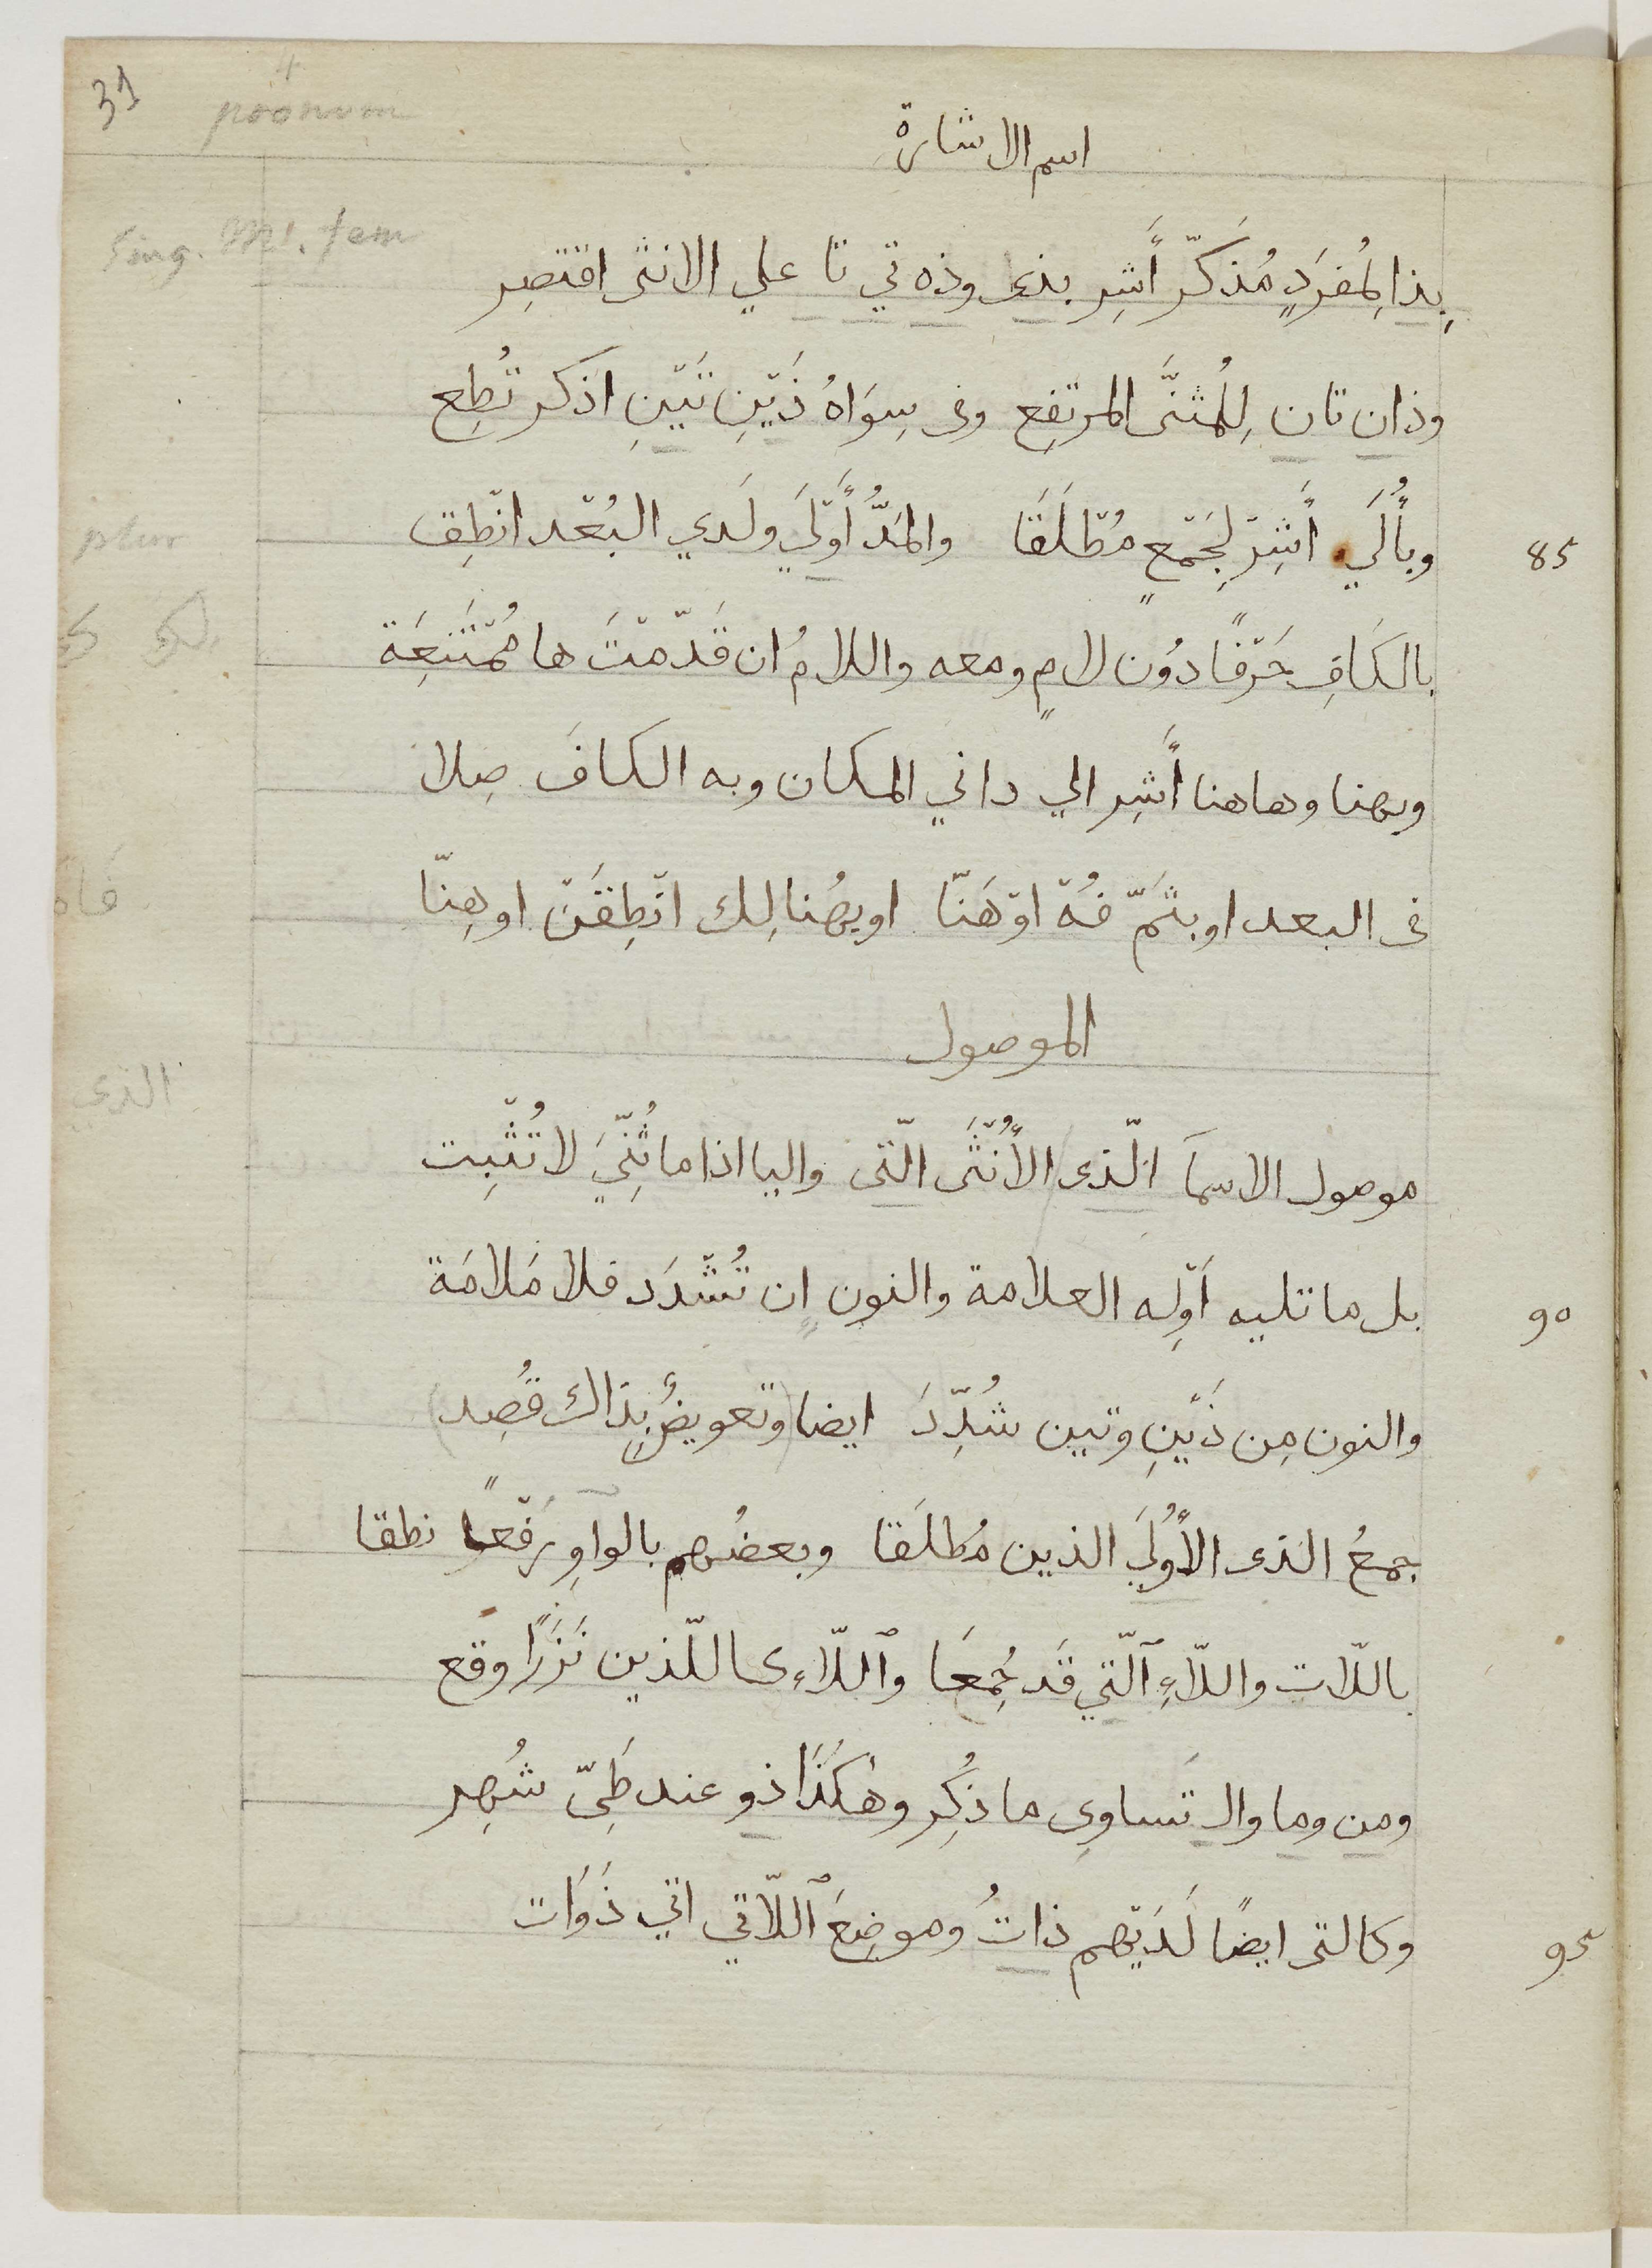 31
4
pronom
اسم الاشارة
Sing. M. fem
بِذا لِمُفرَدٍ مُذَكّر أَشِر بذى وذه تي تا علي الانثى اقتصِر
وذان تان لِلمُثنَّى المرتفِع وفى سِوَاهُ ذَيْنِ تَيْنِ اذكر تُطِع
plur
85
وبأُلَي أَشِرْ لِجَمْعٍ مُطْلَقَا والمَدُّ أَوْلَي ولَدي البُعْد انْطِق
بالكَافِ حَرْفًا دوُن لامٍ ومعه واللامُ ان قَدّمْتَ ها مُمْتَنِعَة
وبهنا وهاهنا أَشِر الي داني المكان وبه الكافَ صِلا
فى البعد او بثَمّ فُهْ اوْ هَنّا او بهُنالِك انْطِقَنْ او هِنّا
الموصول
الذي
موصول الاسمآ الّذى الأُنْثَى الّتى واليا اذا ما ثُنِّيَ لا تُثْبِت
90
بل ما تليه اَوْلِه العلامة والنون اِن تُشْدَد فلا مَلامَة
والنون مِن ذَيْنِ وتين شُدِّدَ ايضا (وتعويضٌ بِذاك قُصِد)
جمعُ الذى الأُولَي الذين مُطلَقا وبعضُهم بالواوِ رَفْعًا نطقا
باللّات واللّاءِ ٱلّتي قَد جُمِعَا وٱللّاءِ كاللّذين نَزْرًا وقع
ومن وما وال تَساوى ما ذُكِر وهٰكَذَا ذو عند طَىّ شُهِر
95
وكالتى ايضًا لَدَيْهم ذاتُ وموضِعَ ٱللّاتي اتي ذَوَات